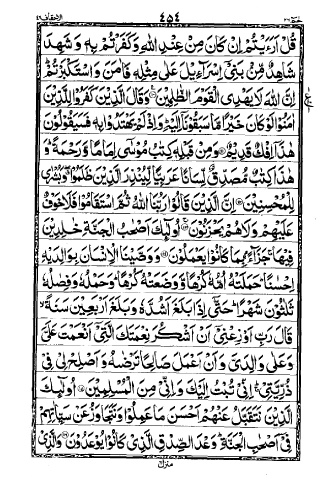 الاحقاف ٤٦ ٤٥٤ حٰمٓ ٢٦
قُلْ اَرَءَيْتُمْ اِنْ كَانَ مِنْ عِنْدِ اللهِ وَكَفَرْتُمْ بِهٖ وَشَهِدَ
شَاهِدٌ مِّنْ بَنِيْٓ اِسْرَآءِيْلَ عَلٰى مِثْلِهٖ فَاٰمَنَ وَاسْتَكْبَرْتُمْ
اِنَّ اللهَ لَا يَهْدِى الْقَوْمَ الظّٰلِمِيْنَ ۝ وَقَالَ الَّذِيْنَ كَفَرُوْا لِلَّذِيْنَ
اٰمَنُوْا لَوْ كَانَ خَيْرًا مَّا سَبَقُوْنَآ اِلَيْهِ وَاِذْ لَمْ يَهْتَدُوْا بِهٖ فَسَيَقُوْلُوْنَ
هٰذَآ اِفْكٌ قَدِيْمٌ ۝ وَمِنْ قَبْلِهٖ كِتٰبُ مُوْسٰٓى اِمَامًا وَّرَحْمَةً وَ
هٰذَا كِتٰبٌ مُّصَدِّقٌ لِّسَانًا عَرَبِيًّا لِّيُنْذِرَ الَّذِيْنَ ظَلَمُوْا وَبُشْرٰى
لِلْمُحْسِنِيْنَ ۝ اِنَّ الَّذِيْنَ قَالُوْا رَبُّنَا اللهُ ثُمَّ اسْتَقَامُوْا فَلَا خَوْفٌ
عَلَيْهِمْ وَلَا هُمْ يَحْزَنُوْنَ ۝ اُولٰٓئِكَ اَصْحٰبُ الْجَنَّةِ خٰلِدِيْنَ
فِيْهَا جَزَآءًۢ بِمَا كَانُوْا يَعْمَلُوْنَ ۝ وَوَصَّيْنَا الْاِنْسَانَ بِوَالِدَيْهِ
اِحْسٰنًا حَمَلَتْهُ اُمُّهٗ كُرْهًا وَّوَضَعَتْهُ كُرْهًا وَحَمْلُهٗ وَفِصٰلُهٗ
ثَلٰثُوْنَ شَهْرًا حَتّٰٓى اِذَا بَلَغَ اَشُدَّهٗ وَبَلَغَ اَرْبَعِيْنَ سَنَةً
قَالَ رَبِّ اَوْزِعْنِيْٓ اَنْ اَشْكُرَ نِعْمَتَكَ الَّتِيْٓ اَنْعَمْتَ عَلَيَّ
وَعَلٰى وَالِدَيَّ وَاَنْ اَعْمَلَ صَالِحًا تَرْضٰىهُ وَاَصْلِحْ لِيْ فِيْ
ذُرِّيَّتِيْ اِنِّيْ تُبْتُ اِلَيْكَ وَاِنِّيْ مِنَ الْمُسْلِمِيْنَ ۝ اُولٰٓئِكَ
الَّذِيْنَ نَتَقَبَّلُ عَنْهُمْ اَحْسَنَ مَا عَمِلُوْا وَنَتَجَاوَزُ عَنْ سَيِّاٰتِهِمْ
فِيْٓ اَصْحٰبِ الْجَنَّةِ وَعْدَ الصِّدْقِ الَّذِيْ كَانُوْا يُوْعَدُوْنَ ۝ وَالَّذِيْ